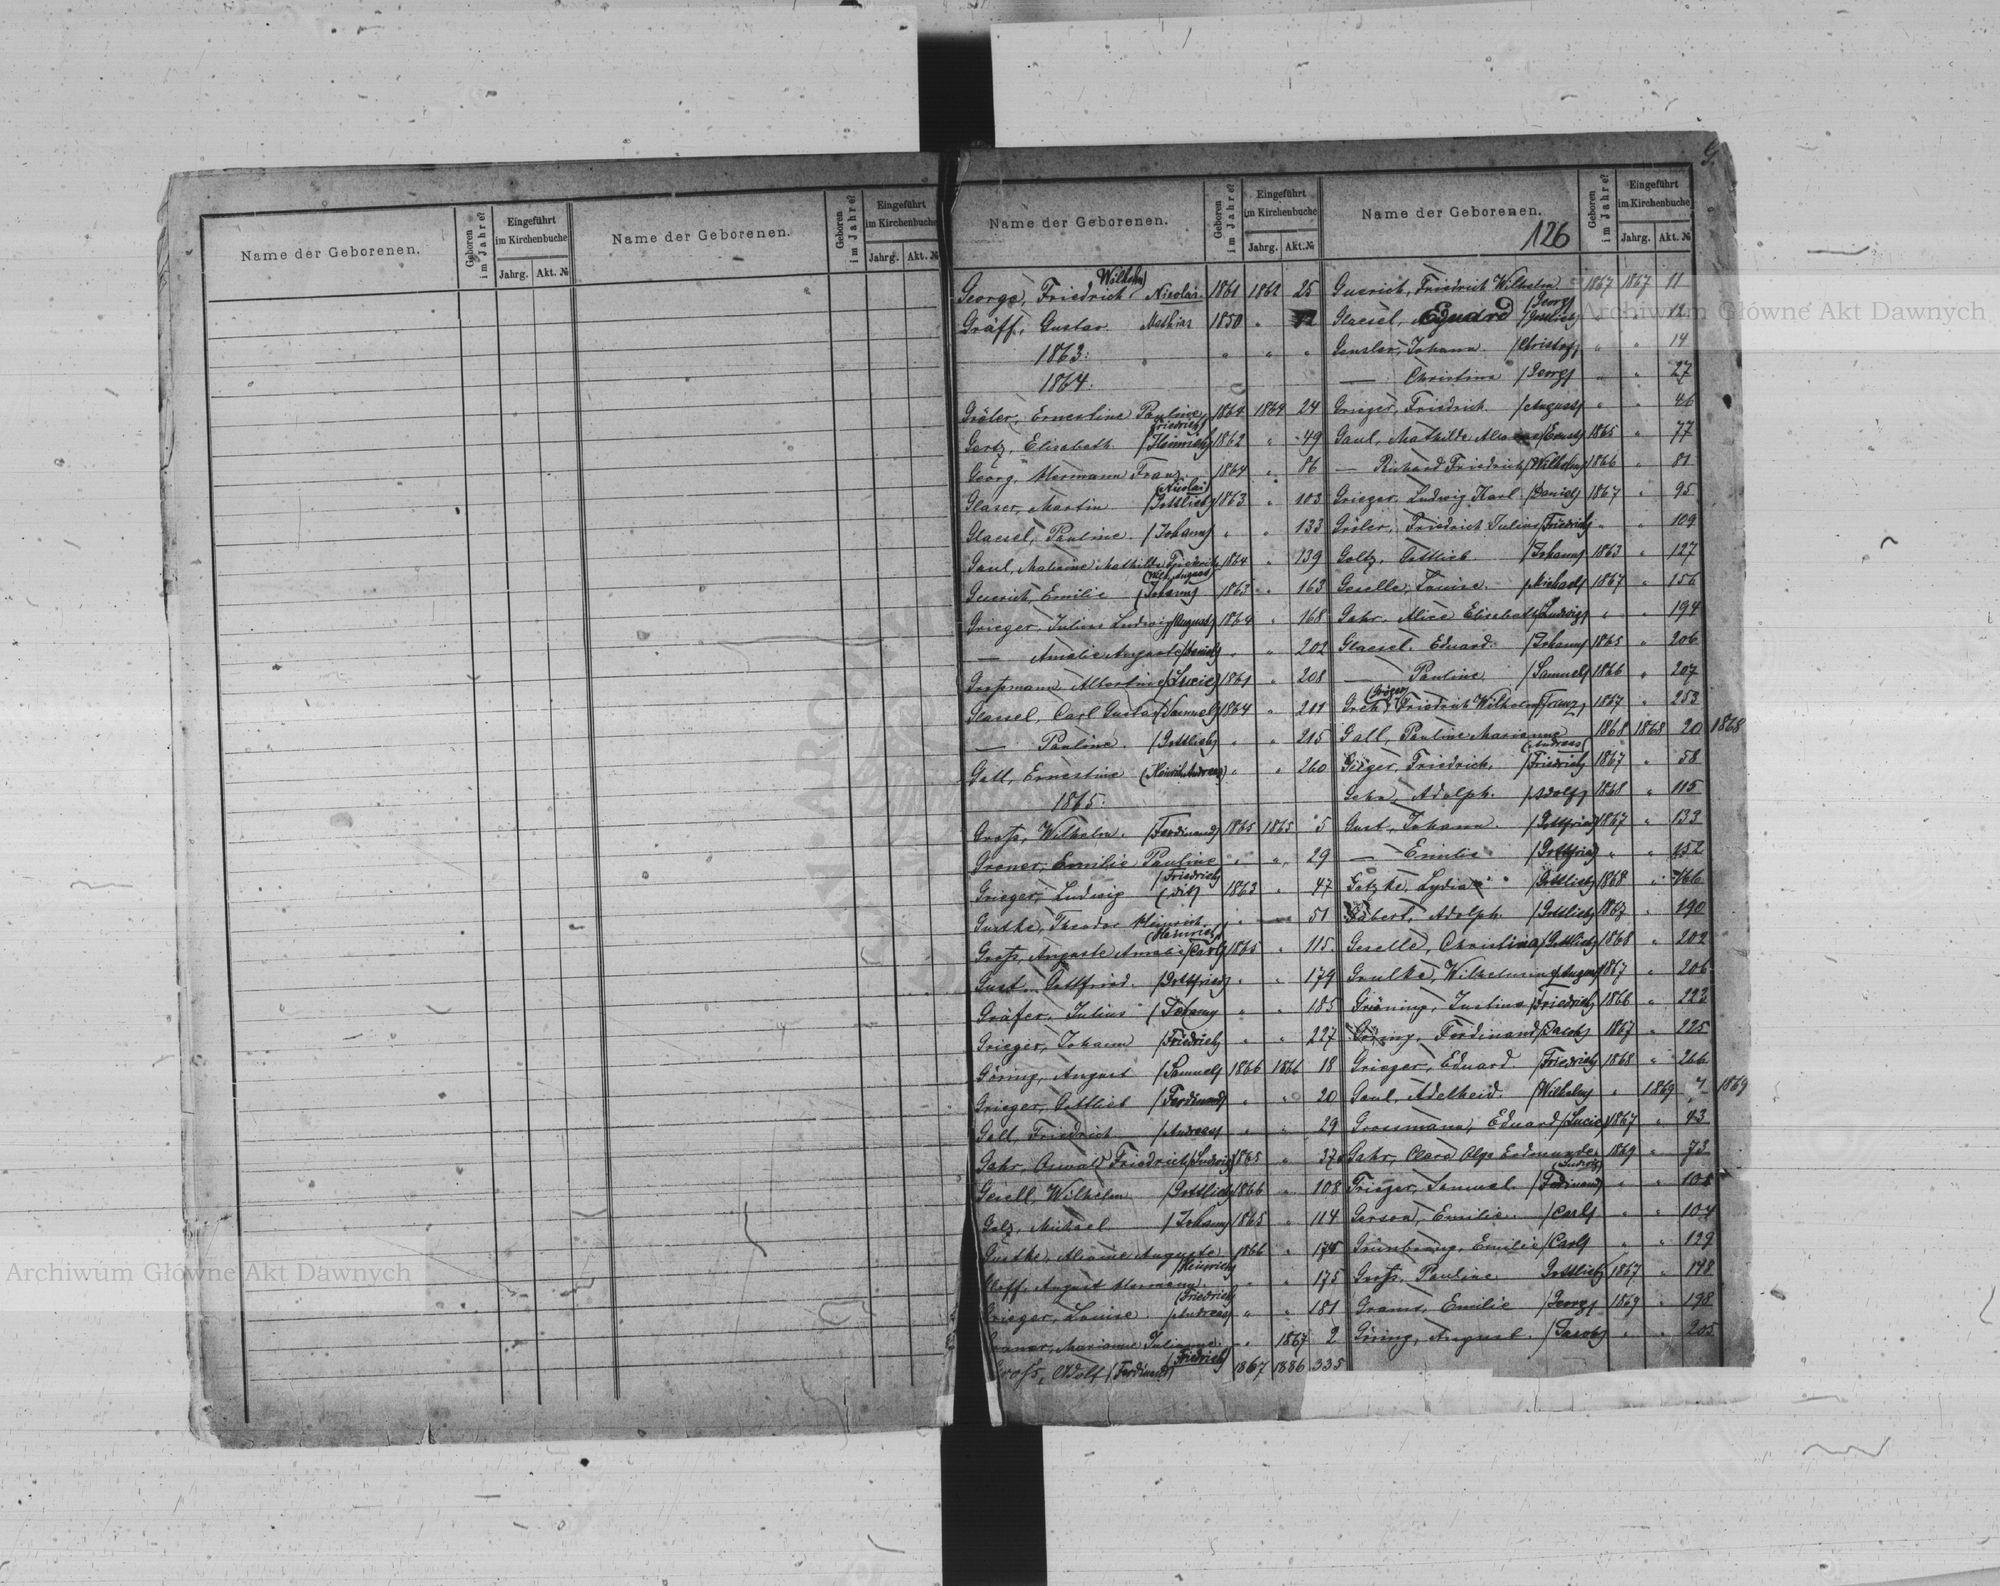 Name der Geborenen.
Geboren im Jahre?
Eingeführt im Kirchenbuche
Jahrg. Akt. №
Name der Geborenen.
Geboren im Jahre?
Eingeführt im Kirchenbuche
Jahrg. Akt. №
Name der Geborenen.
Geboren im Jahre?
Eingeführt im Kirchenbuche
Jahrg. Akt. №
George, Friedrich Wilhelm Nicolai 1861 1862 25
Gräff, Gustav Mathias 1850 "
1863: " " "
1864.
Gröler, Ernestine Pauline 1864 1864 24
Gertz, Elisabeth (Friedrich Heinrich) 1862 " 49
Georg, Hermann Franz 1864 " 86
Glaser, Martin (Nicolai Gottlieb) 1863 " 103
Glaesel, Pauline (Johann) " " 133
Gaul, Malwine Mathilde Friedrich 1864 " 139
Guerich, Emilie (Wilh. August Johann) 1863 " 163
Grieger, Julius Ludwig (August) 1864 " 168
— Amalie Auguste (Daniel) " " 202
Großmann, Albertine (Lucie) 1861 " 208
Glaesel, Carl Gustav (Samuel) 1864 " 211
— Pauline (Gottlieb) " " 215
Gall, Ernestine (Heinrich Andreas) " " 260
1865:
Groß, Wilhelm (Ferdinand) 1865 1865 5
Groner, Emilie Pauline " " 29
Grieger, Ludwig (Friedrich) 1863 " 47
Gustke, Theodor Heinrich " — 51
Groß, Auguste Amalie (Heinrich Carl) 1865 " 115
Gust, Gottfried (Gottfried) " " 179
Gräfer, Julius (Johann) " " 185
Grieger, Johann (Friedrich) " " 227
Göring, August (Samuel) 1866 1866 18
Grieger, Gottlieb (Ferdinand) " " 20
Gall, Friedrich (Andreas) " " 29
Gahr, Oswald Friedrich (Ludwig) 1865 " 37
Gesell, Wilhelm (Gottlieb) 1866 " 108
Golz, Michael (Johann) 1865 " 114
Gustke, Alwine Auguste (Heinrich) 1866 "
August Hermann (Friedrich) " " 175
Grieger, Louise (Andreas) " " 181
Marianna Julianna " 1867 2
Groß, Adolf (Ferdinand) (Friedrich) 1867 1886 335
Name der Geborenen.
126
Geboren im Jahre?
Eingeführt im Kirchenbuche
Jahrg. Akt. №
Guerich, Friedrich Wilhelm 1867 1867 11
Glaesel, Eduard (Georg Gottlieb) " " 12
Gensler, Johann (Christof) " " 14
— Christine (Georg) " " 27
Grieger, Friedrich (August) " " 46
Gaul, Mathilde (Ernst) 1865 " 77
— Richard Friedrich (Wilhelm) 1866 " 81
Grieger, Ludwig Karl (Daniel) 1867 " 95
Gröler, Friedrich Julius (Friedrich) " " 109
Goltz, Gottlieb (Johann) 1863 " 127
Geselle, Louise (Michael) 1867 " 156
Gahr, Alice Elisabeth (Ludwig) " " 194
Glaesel, Eduard (Johann) 1865 " 206
— Pauline (Samuel) 1866 " 207
Friedrich Wilhelm (Franz) 1867 " 253
Gall, Pauline Marianne (Andreas) 1868 1868 20 1868
Grieger, Friedrich (Friedrich) 1867 " 58
Adolph (Adolf) 1868 " 115
Gust, Johann (Gottfried) 1867 " 133
— Emilie (Gottfried) " " 152
Getzke, Lydia (Gottlieb) 1868 " 166
Gabert, Adolph (Gottlieb) 1867 " 190
Geselle, Christina (Gottlieb) 1868 " 202
Grulke, Wilhelmine (August) 1867 " 206
Gröning, Justine (Friedrich) 1866 " 223
Göring, Ferdinand (Jacob) 1867 " 225
Grieger, Eduard (Friedrich) 1868 " 266
Gaul, Adelheid (Wilhelm) " 1869 7 1869
Grossmann, Eduard (Lucie) 1867 " 43
Gahr, Clara Olga (Ludwig) 1869 " 73
Grieger, Samuel (Ferdinand) " "
Gerson, Emilie (Carl) " " 104
Emilie (Carl) " " 129
Groß, Pauline Gottlieb) 1867 " 148
Grams, Emilie (Georg) 1869 " 198
Göring, August (Jacob) " " 205
Archiwum Główne Akt Dawnych
Archiwum Główne Akt Dawnych